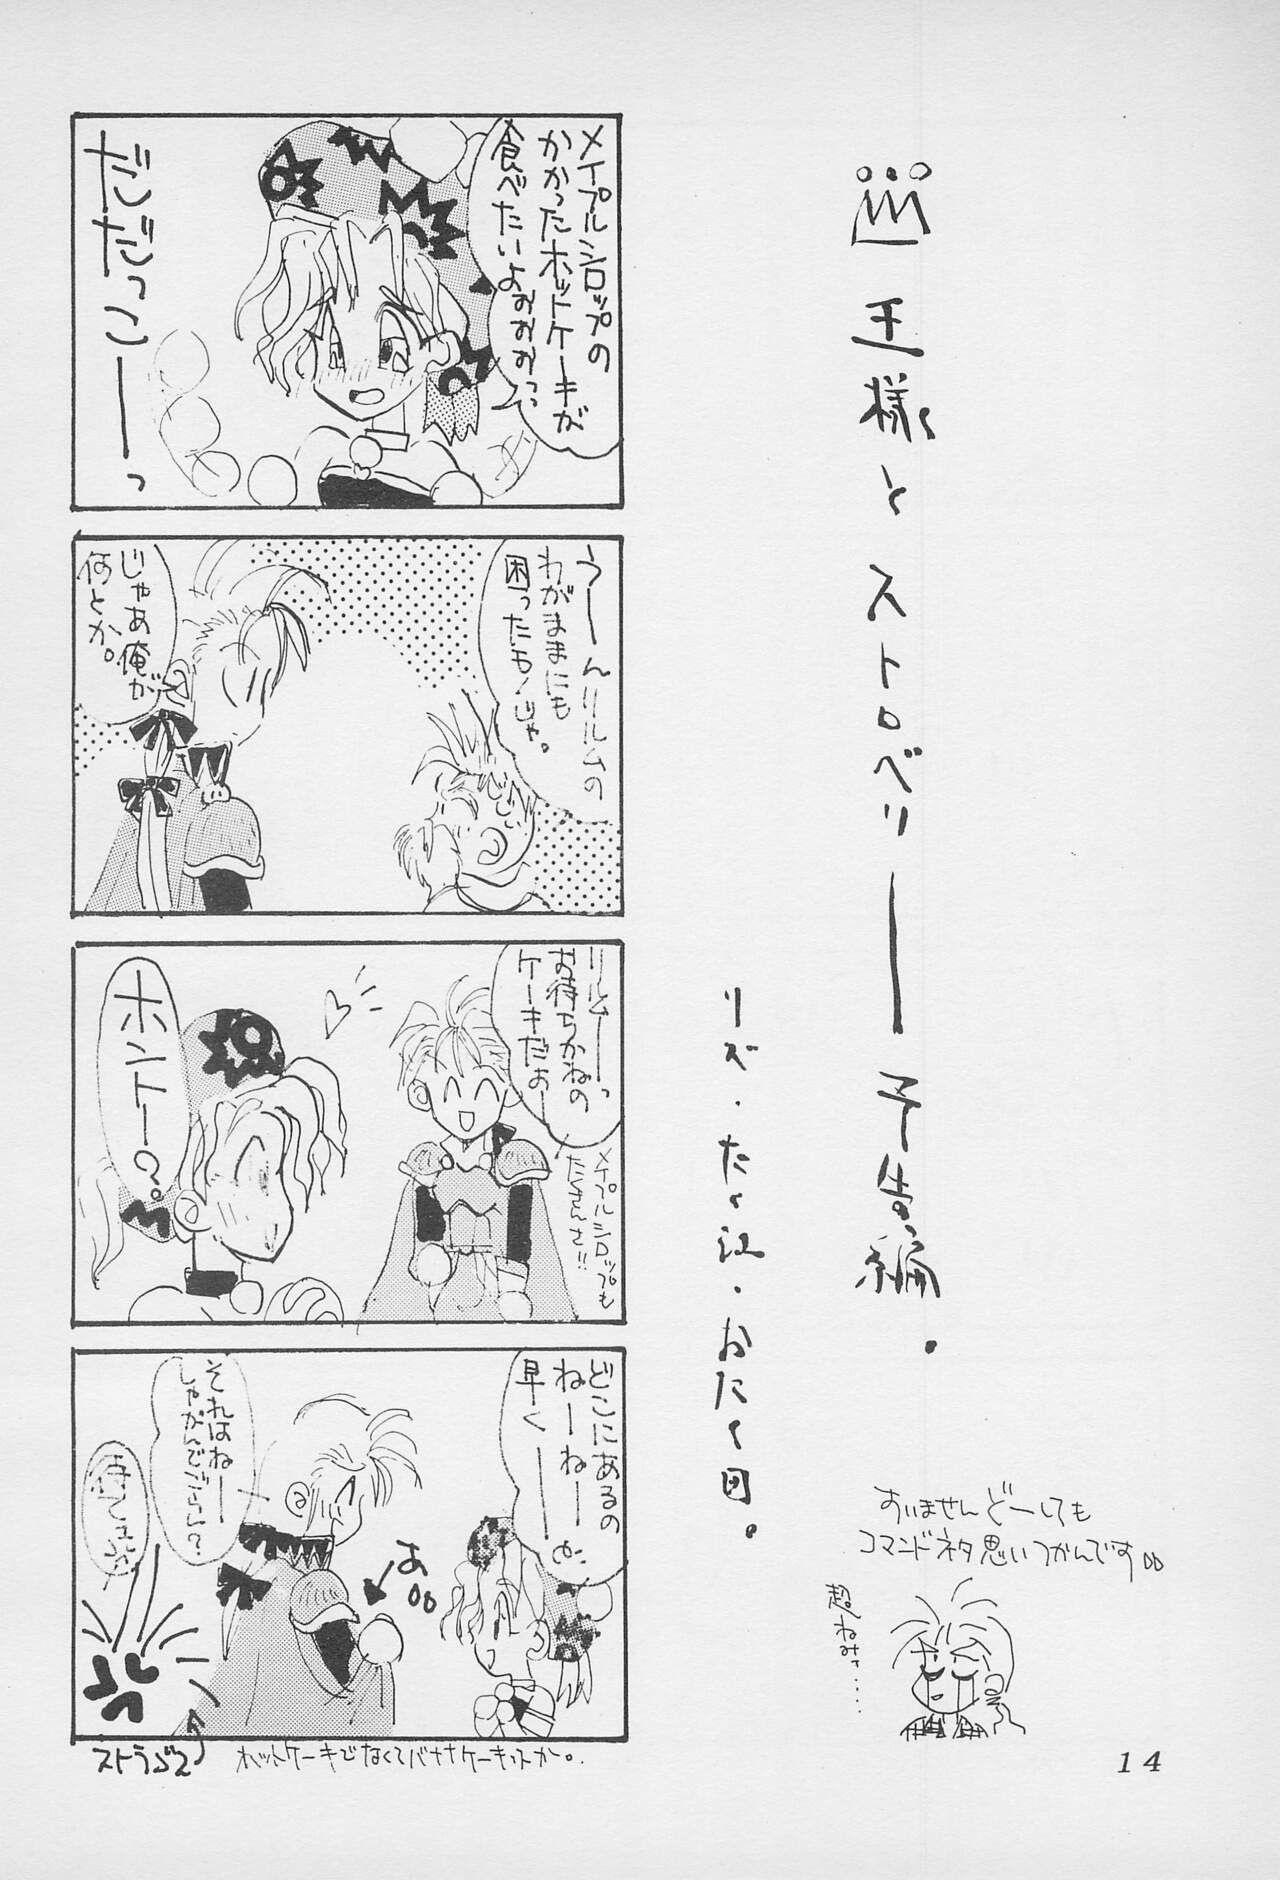 王様とストロベリー予告編。
リズ・たく江・おたく団。
すいませんどーしても
コマンドネタ思いつかんです
超ねみー……
メイプルシロップの
かかったホットケーキが
食べたいよぉぉぉぉっ
だだっこーーっ
うーんリルムの
わがままにも
困ったもんじゃ。
じゃあ俺が
何とか。
リルムーっ
お待ちかねの
ケーキだぉー
メイプルシロップも
たくさんさ!!
ホントー?。
どこにあるの
ねーねー
早くーー
あ
それはねー
しゃがんでごらん?
ストラぶん
ホットケーキでなくてバナナケーキだか。
14